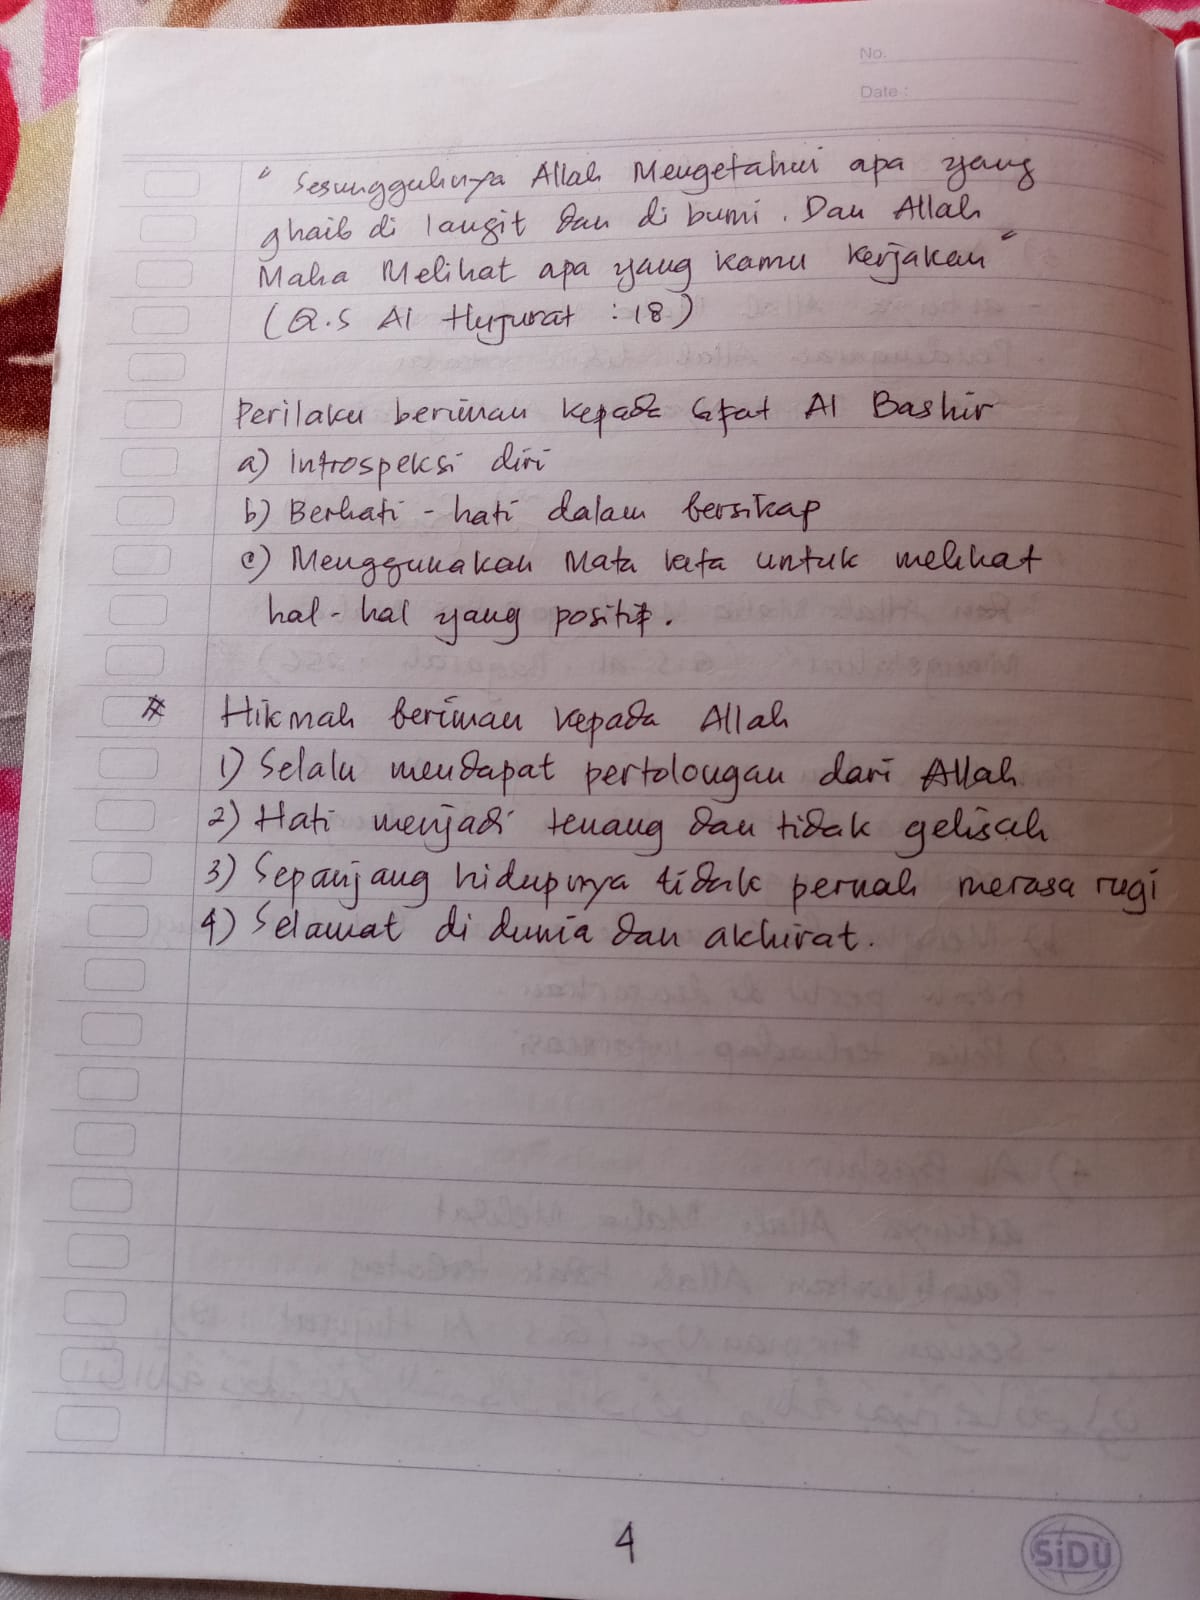 No.
Date :
" Sesungguhnya Allah Mengetahui apa yang
ghaib di langit dan di bumi. Dan Allah
Maha Melihat apa yang kamu kerjakan "
(Q.S Al Hujurat : 18)
Perilaku beriman kepada sifat Al Bashir
a) Introspeksi diri
b) Berhati - hati dalam bersikap
c) Menggunakan Mata kita untuk melihat
hal - hal yang positif.
# Hikmah beriman kepada Allah
1) Selalu mendapat pertolongan dari Allah
2) Hati menjadi tenang dan tidak gelisah
3) Sepanjang hidupnya tidak pernah merasa rugi
4) Selamat di dunia dan akhirat.
4
SiDU